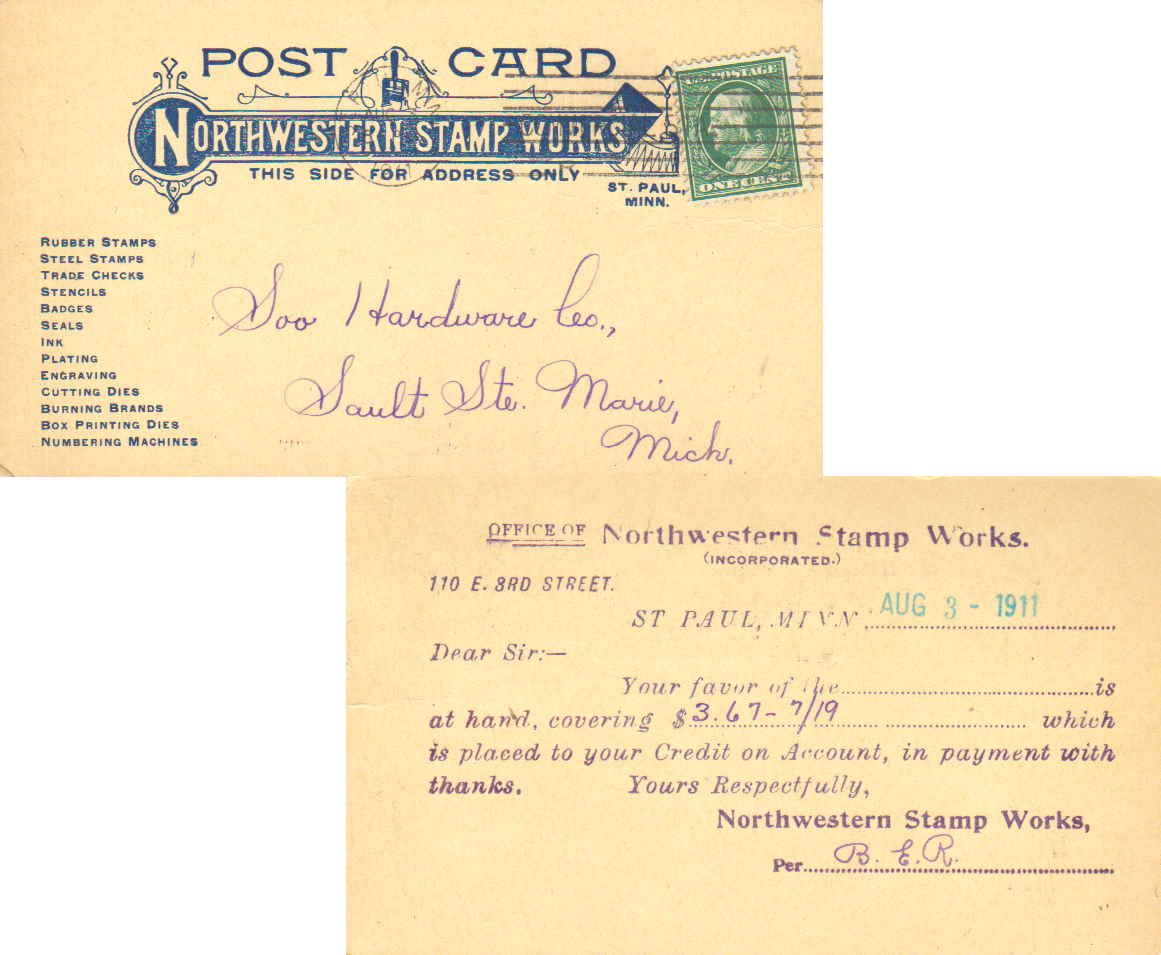 POST CARD
NORTHWESTERN STAMP WORKS
THIS SIDE FOR ADDRESS ONLY
ST. PAUL,
MINN.
U.S. POSTAGE
ONE CENT
RUBBER STAMPS
STEEL STAMPS
TRADE CHECKS
STENCILS
BADGES
SEALS
INK
PLATING
ENGRAVING
CUTTING DIES
BURNING BRANDS
BOX PRINTING DIES
NUMBERING MACHINES
Soo Hardware Co.,
Sault Ste. Marie,
Mich.
OFFICE OF Northwestern Stamp Works.
(INCORPORATED.)
110 E. 3RD STREET.
ST PAUL, MINN AUG 3 - 1911
Dear Sir:—
Your favor of the is
at hand, covering $3.67 - 7/19 which
is placed to your Credit on Account, in payment with
thanks. Yours Respectfully,
Northwestern Stamp Works,
Per B. E. R.